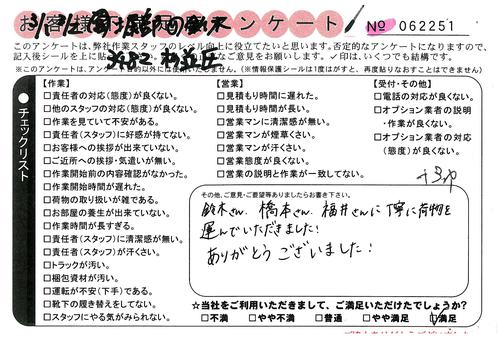 お客様 アンケート
No 062251
このアンケートは、弊社作業スタッフのレベル向上に役立てたいと思います。否定的なアンケートになりますので、
記入後シールを上に貼 なご意見をお願いします。✓印は、いくつでも結構です。
※このアンケートは、アンケート目的以外には使用いたしません。(※情報保護シールは1度はがすと、再度貼りなおすことはできません)
チェックリスト
【作業】
□責任者の対応(態度)が良くない。
□他のスタッフの対応(態度)が良くない。
□作業を見ていて不安がある。
□責任者(スタッフ)に好感が持てない。
□お客様への挨拶が出来ていない。
□ご近所への挨拶・気遣いが無い。
□作業開始前の内容確認がなかった。
□作業開始時間が遅れた。
□荷物の取り扱いが雑である。
□お部屋の養生が出来ていない。
□作業時間が長すぎる。
□責任者(スタッフ)に清潔感が無い。
□責任者(スタッフ)が汗くさい。
□トラックが汚い。
□梱包資材が汚い。
□運転が不安(下手)である。
□靴下の履き替えをしてない。
□スタッフにやる気がみられない。
【営業】
□見積もり時間に遅れた。
□見積もり時間が長い。
□営業マンに清潔感が無い。
□営業マンが煙草くさい。
□営業マンが汗くさい。
□営業態度が良くない。
□営業の説明と作業が一致してない。
【受付・その他】
□電話の対応が良くない。
□オプション業者の説明
・作業が良くない。
□オプション業者の対応
(態度)が良くない。
その他、ご意見・ご要望等ありましたらお書き下さい。
鈴木さん、橋本さん、福井さんに丁寧に荷物を
運んでいただきました!
ありがとうございました!
☆当社をご利用いただきまして、ご満足いただけたでしょうか?
□不満 □やや不満 □普通 □やや満足 ☑満足